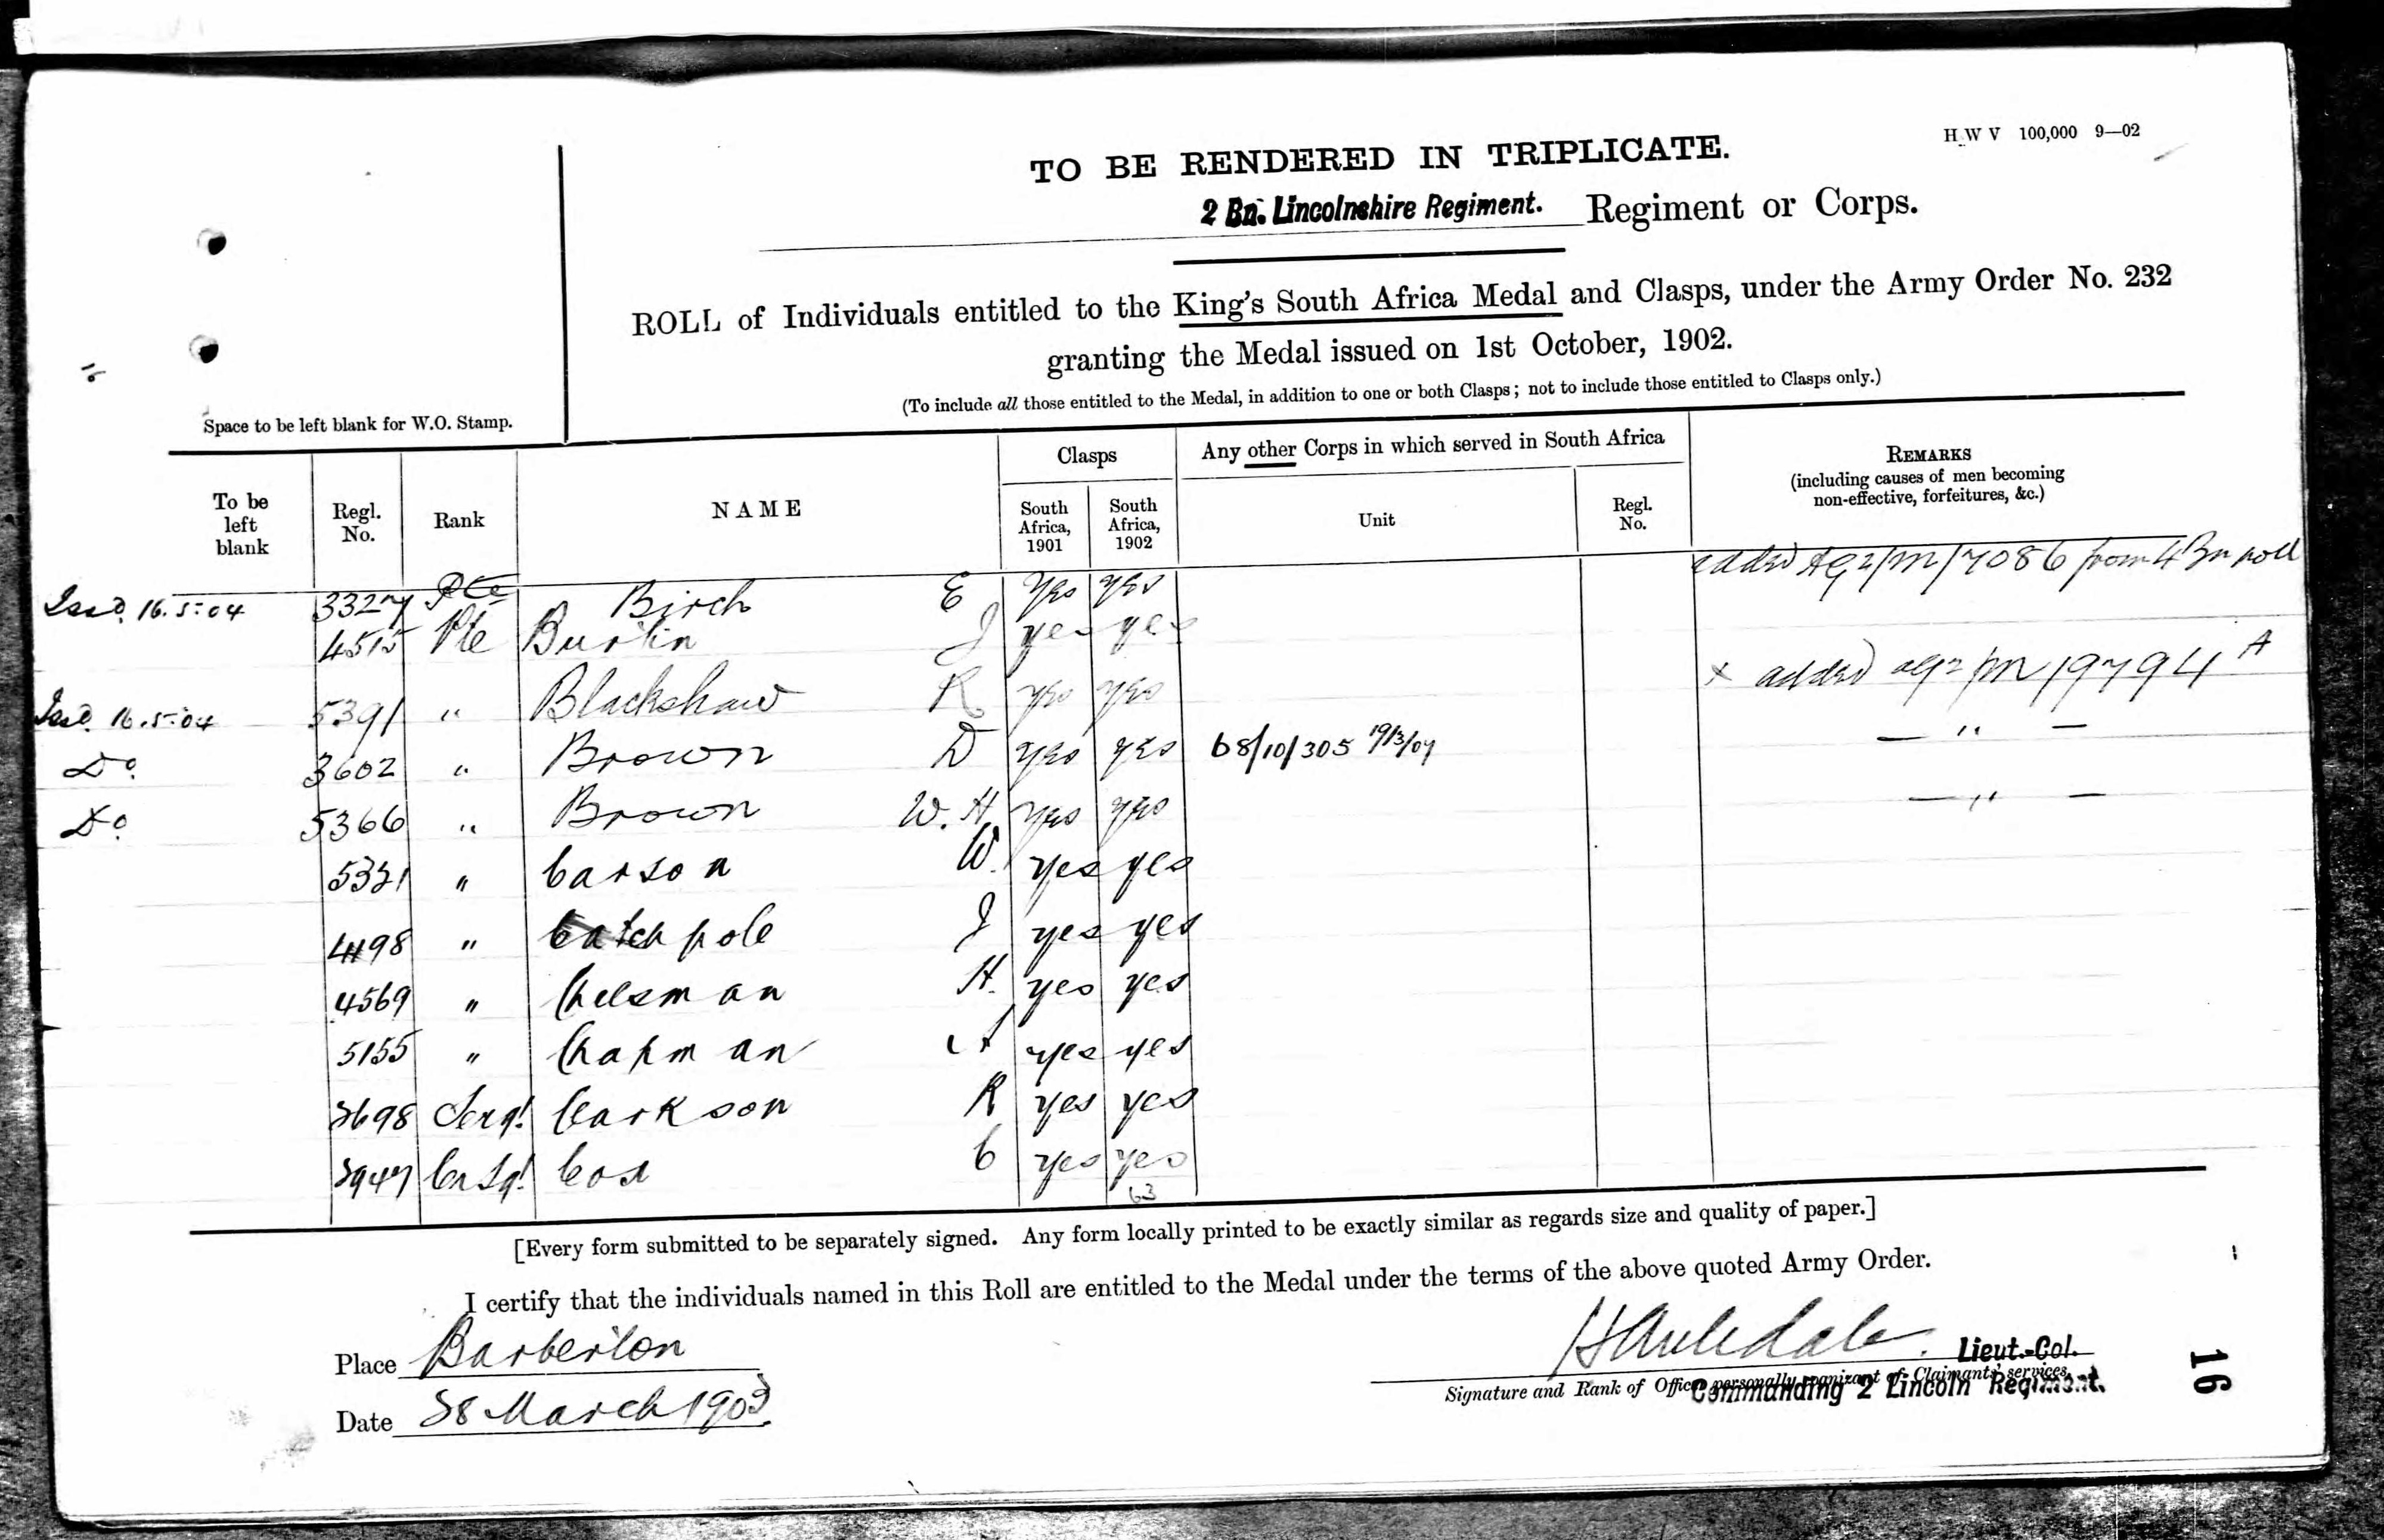 H W V 100,000 9—02
TO BE RENDERED IN TRIPLICATE.
2 Bn. Lincolnshire Regiment. Regiment or Corps.
ROLL of Individuals entitled to the King's South Africa Medal and Clasps, under the Army Order No. 232
granting the Medal issued on 1st October, 1902.
(To include all those entitled to the Medal, in addition to one or both Clasps; not to include those entitled to Clasps only.)
Space to be left blank for W.O. Stamp.
To be left blank Regl. No. Rank NAME Clasps South Africa, 1901 South Africa, 1902 Any other Corps in which served in South Africa Unit Regl. No. REMARKS (including causes of men becoming non-effective, forfeitures, &c.)
Issd. 16.5.04 3327 Pte Birch E Yes Yes added AG2/M/7086 from 4 Bn roll
4515 Pte Burtin J yes yes
Issd. 16.5.04 5391 " Blackshaw R Yes Yes × added AG2/M/9794 A
Do. 3602 " Brown D Yes Yes 68/10/305 19/3/04 — " —
Do. 5366 " Brown W. H. Yes Yes — " —
5321 " Carson W. yes yes
4198 " Catchpole J yes yes
4569 " Cheesman H. yes yes
5155 " Chapman A yes yes
3698 Sergt. Clarkson R yes yes
3947 Cr Sgt. Cox C yes yes
63
[Every form submitted to be separately signed. Any form locally printed to be exactly similar as regards size and quality of paper.]
I certify that the individuals named in this Roll are entitled to the Medal under the terms of the above quoted Army Order.
Place Barberton
Date 28 March 1903
Lieut.-Col.
Signature and Rank of Officer personally cognizant of Claimants' services.
Commanding 2 Lincoln Regiment.
16